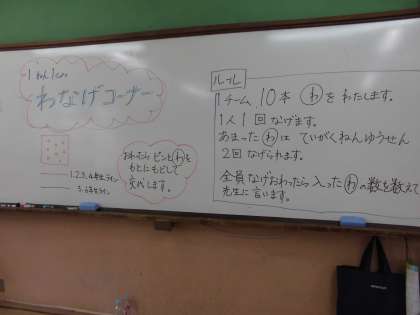 1ねん1くみ
わなげコーナー
1.2.3.4年生ライン
5.6年生ライン
おわったらピンとわを
もとにもどして
交代します。
ルール
1チーム 10本 わ をわたします。
1人1回なげます。
あまった わ は ていがくねんゆうせん
2回なげられます。
全員なげおわったら入った わ の数を数えて
先生に言います。